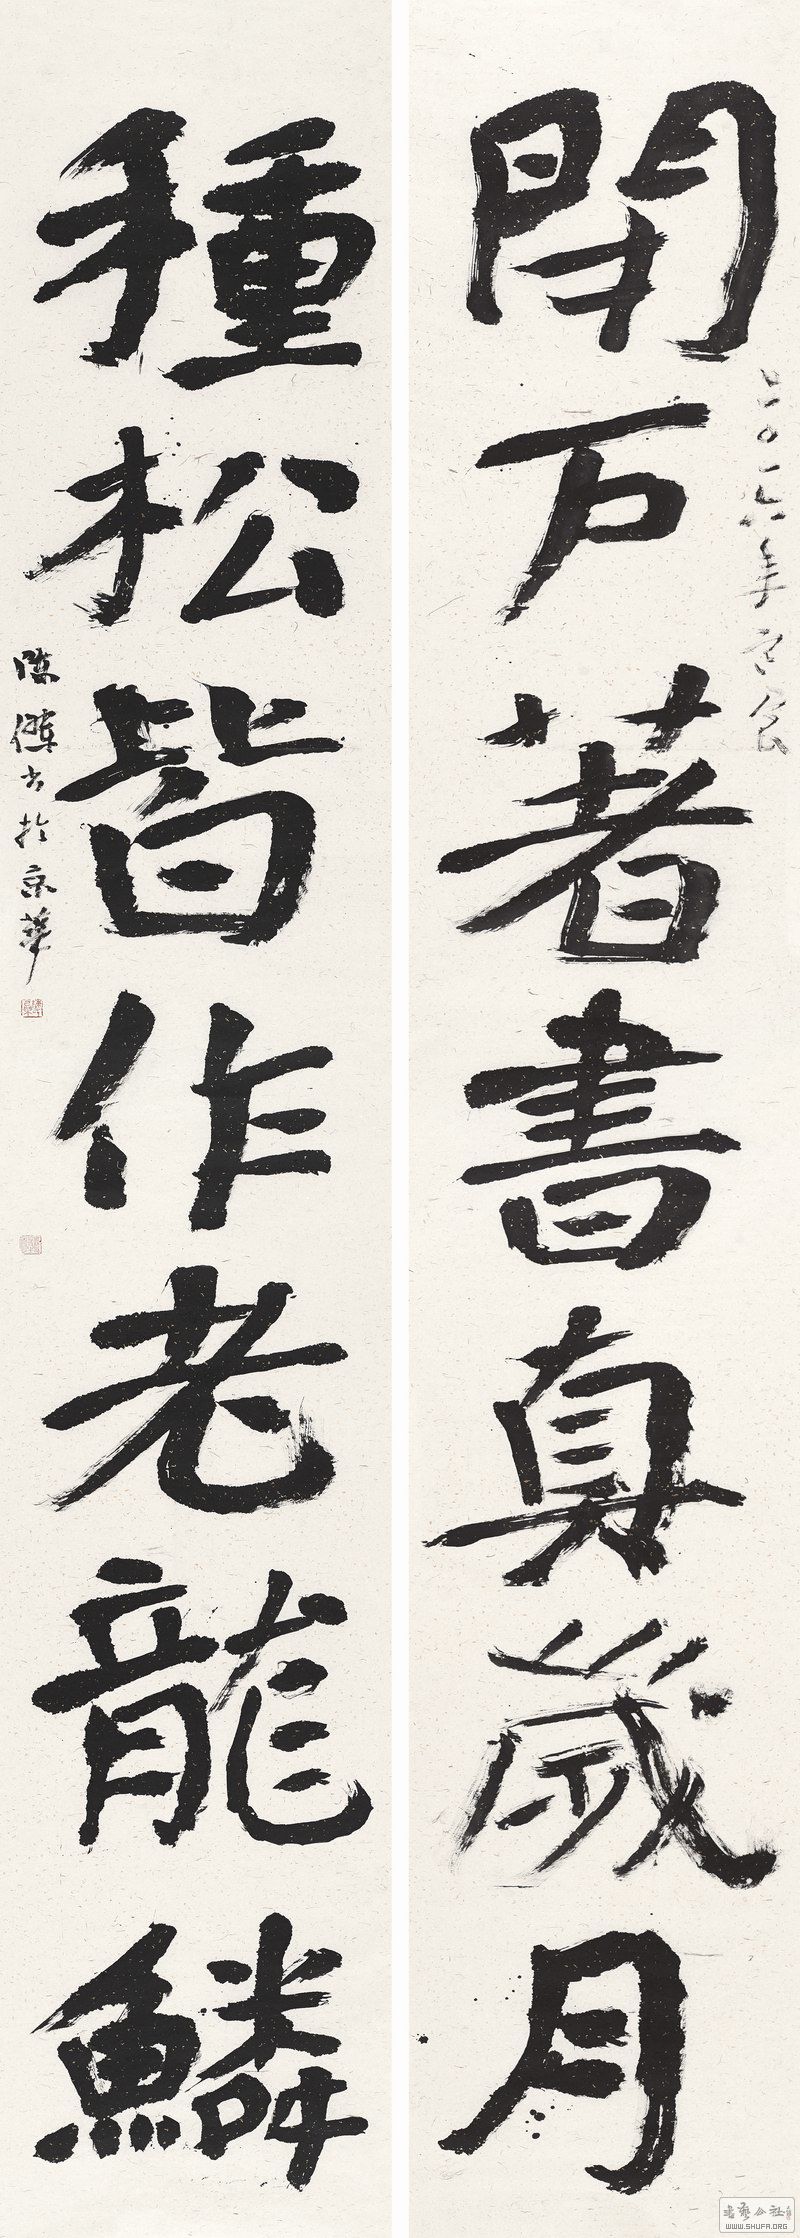 閉户著書真歲月
二〇一六年寒食
種松皆作老龍鱗
陳傑书於京華
書藝公社
WWW.SHUFA.ORG